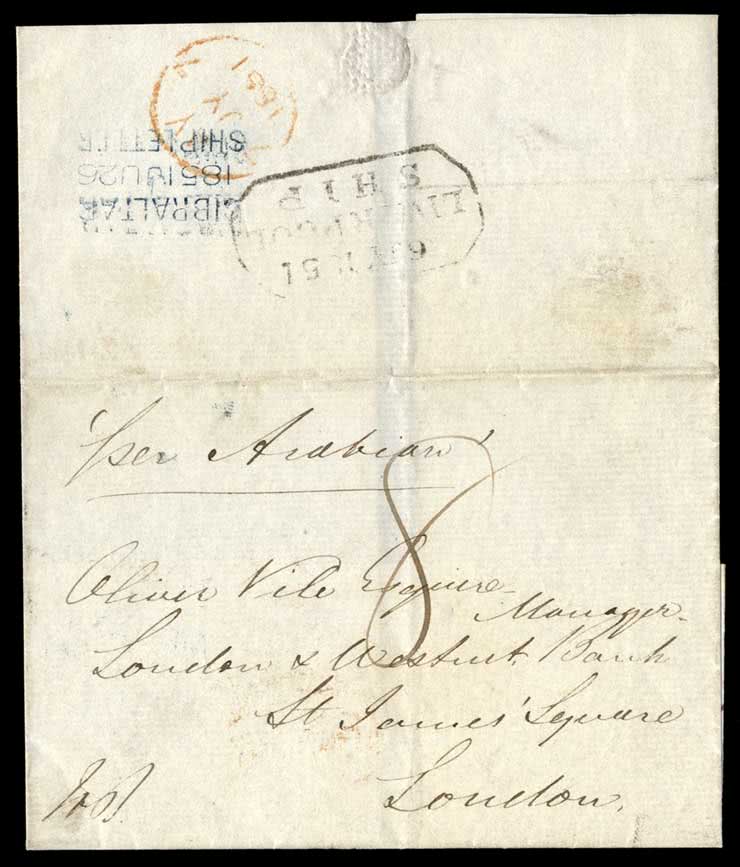 1851
SHIP LETTER
1851 JU 26
GIBRALTAR
SHIP
LIVERPOOL
6 JY 51
'per Arabian'
8
Oliver Vile Esquire
Manager
London & Westmt. Bank
St James' Square
London.